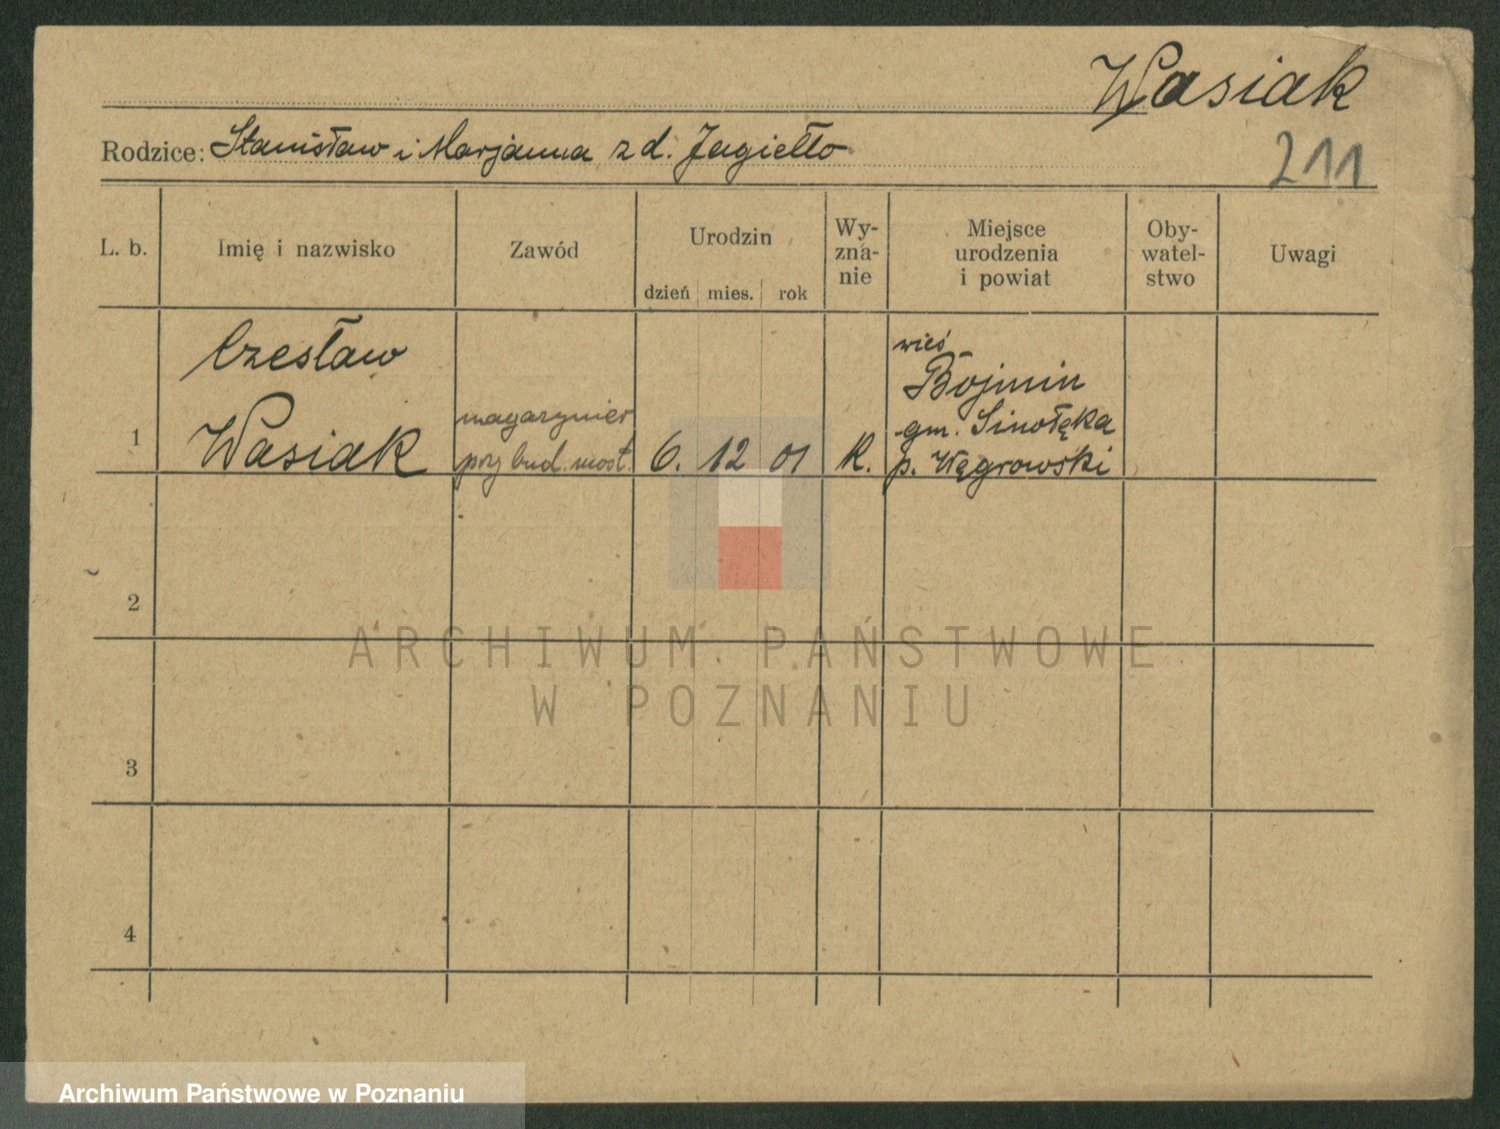 Wasiak
Rodzice: Stanisław i Marjanna z d. Jagiełło
211
L. b.
Imię i nazwisko
Zawód
Urodzin
dzień mies. rok
Wy-
zna-
nie
Miejsce
urodzenia
i powiat
Oby-
watel-
stwo
Uwagi
1
Czesław
Wasiak
magazynier
przy bud. most.
6. 12 01
R.
wieś
Bojmin
gm. Sinołęka
p. Węgrowski
2
3
4
ARCHIWUM PAŃSTWOWE
W POZNANIU
Archiwum Państwowe w Poznaniu